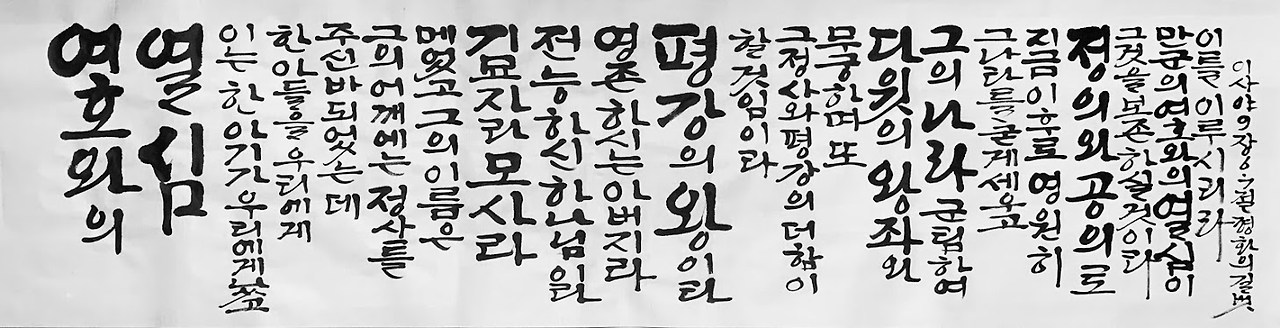 여호와의
열심
이는 한 아기가 우리에게 났고
한 아들을 우리에게
주신 바 되었는데
그의 어깨에는 정사를
메었고 그의 이름은
기묘자라 모사라
전능하신 하나님이라
영존하시는 아버지라
평강의 왕이라
할 것임이라
그 정사와 평강의 더함이
무궁하며 또
다윗의 왕좌와
그의 나라 군림하여
그 나라를 굳게 세우고
지금 이후로 영원히
정의와 공의로
그것을 보존하실 것이라
만군의 여호와의 열심이
이를 이루시리라
이사야 9장